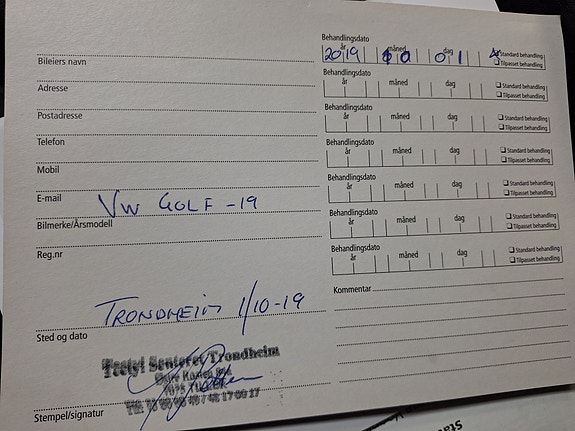 Behandlingsdato
år måned dag
2019 10 01 Standard behandling
Tilpasset behandling
Bileiers navn
Adresse
Postadresse
Telefon
Mobil
E-mail
VW GOLF -19
Bilmerke/Årsmodell
Reg.nr
TRONDHEIM 1/10-19
Sted og dato
Tectyl Senteret Trondheim
Stempel/signatur
Behandlingsdato
år måned dag
Standard behandling
Tilpasset behandling
Behandlingsdato
år måned dag
Standard behandling
Tilpasset behandling
Behandlingsdato
år måned dag
Standard behandling
Tilpasset behandling
Behandlingsdato
år måned dag
Standard behandling
Tilpasset behandling
Behandlingsdato
år måned dag
Standard behandling
Tilpasset behandling
Behandlingsdato
år måned dag
Standard behandling
Tilpasset behandling
Kommentar